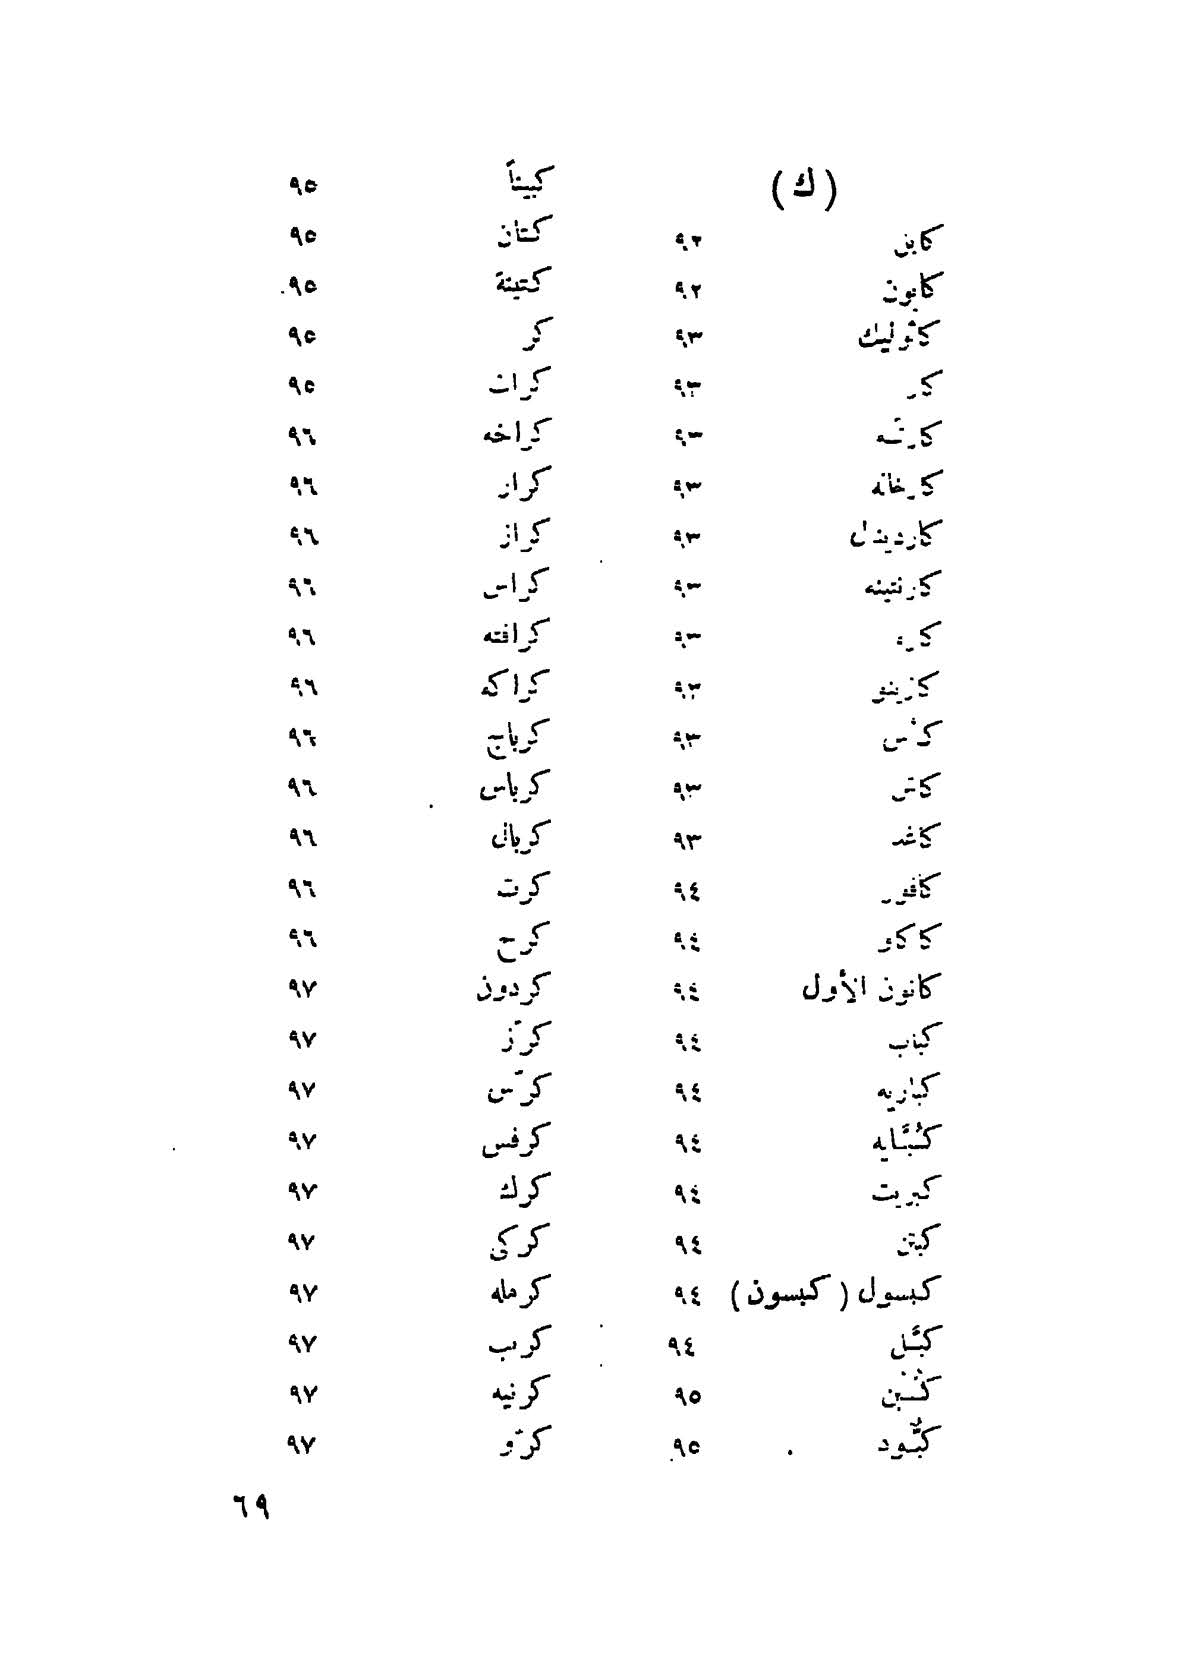 ( ك )
كابل ٩٢
كابون ٩٢
كاثوليك ٩٣
كار ٩٣
كارتَـه ٩٣
كارخانه ٩٣
كاردينال ٩٣
كارنتينه ٩٣
كاره ٩٣
كازينو ٩٣
٩٣
كاش ٩٣
كاغد ٩٣
كافور ٩٤
كاكاو ٩٤
كانون الأول ٩٤
كباب ٩٤
كباريه ٩٤
كُبَّايه ٩٤
كبريت ٩٤
كبتن ٩٤
كبسول ( كبسون ) ٩٤
كبَّل ٩٤
٩٥
كبُّود ٩٥
كبيناً ٩٥
كتان ٩٥
كتينة ٩٥
كر ٩٥
كرات ٩٥
كراخه ٩٦
كرار ٩٦
كراز ٩٦
كراس ٩٦
كرافته ٩٦
كراكه ٩٦
كرباج ٩٦
كرباس ٩٦
كربال ٩٦
كرت ٩٦
كرج ٩٦
كردون ٩٧
كرّز ٩٧
كرّس ٩٧
كرفس ٩٧
كرك ٩٧
كركي ٩٧
كرمله ٩٧
كرنب ٩٧
كرنيه ٩٧
كرّو ٩٧
٦٩